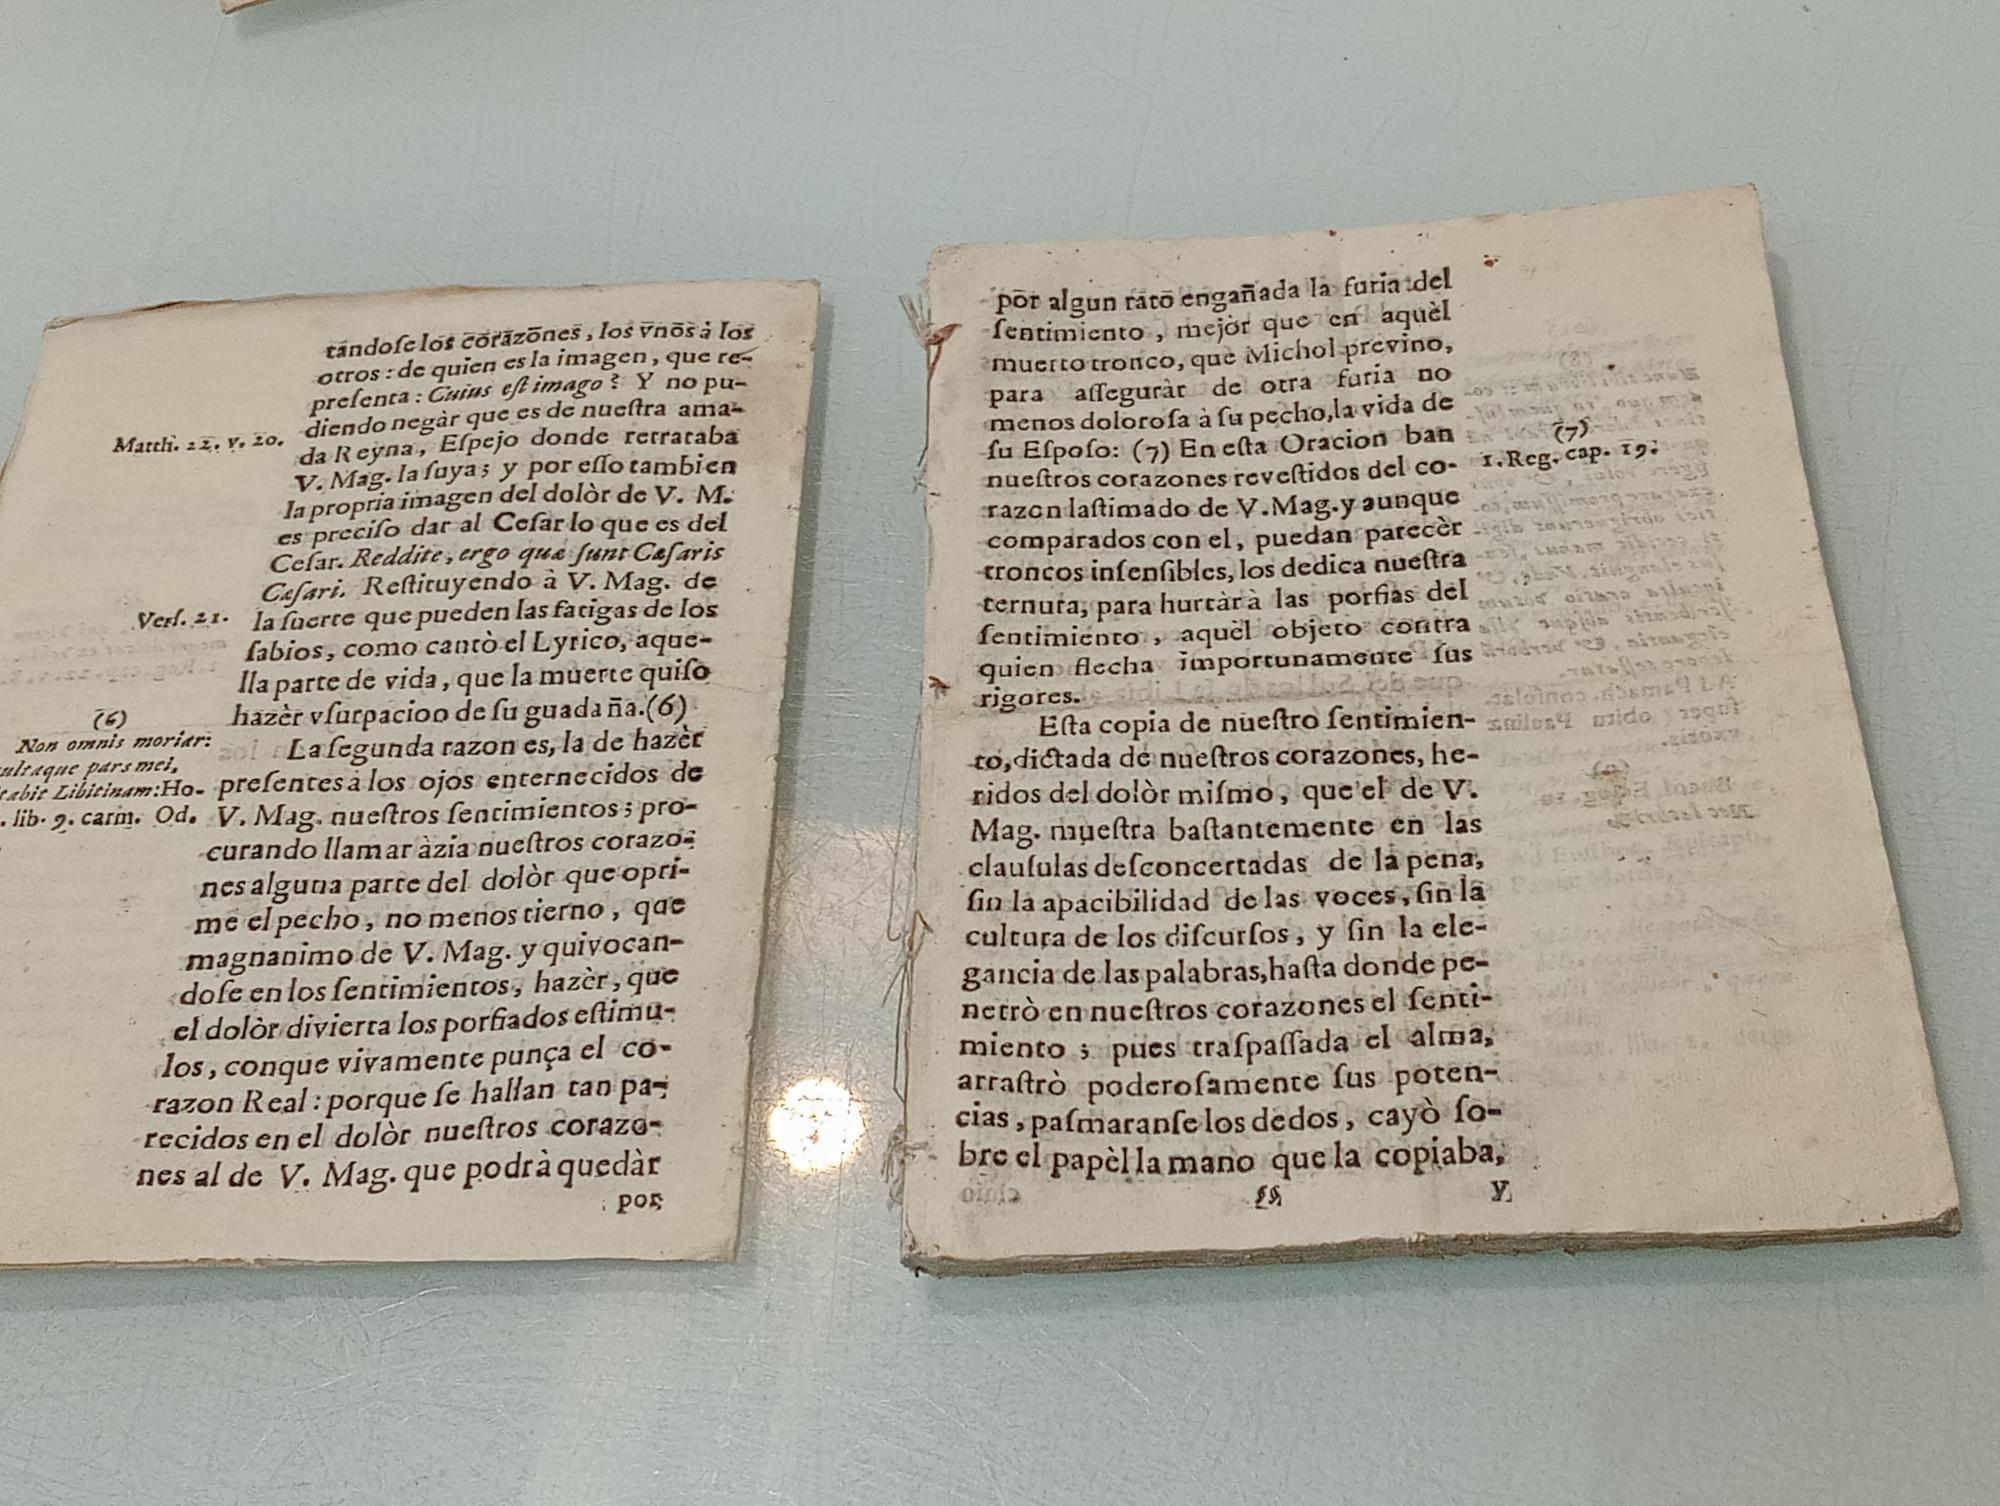 tandoſe los corazones, los vnos à los
otros: de quien es la imagen, que re-
preſenta: Cuius eſt imago? Y no pu-
diendo negàr que es de nueſtra ama-
da Reyna, Eſpejo donde retrataba
V. Mag. la ſuya; y por eſſo tambien
la propria imagen del dolòr de V. M.
es preciſo dar al Ceſar lo que es del
Ceſar. Reddite, ergo quæ ſunt Cæſaris
Cæſari. Reſtituyendo à V. Mag. de
la ſuerte que pueden las fatigas de los
ſabios, como cantò el Lyrico, aque-
lla parte de vida, que la muerte quiſo
hazèr vſurpacioo de ſu guadaña.(6)
La ſegunda razon es, la de hazèr
preſentes à los ojos enternecidos de
V. Mag. nueſtros ſentimientos; pro-
curando llamar àzia nueſtros corazo-
nes alguna parte del dolòr que opri-
me el pecho, no menos tierno, que
magnanimo de V. Mag. y quivocan-
doſe en los ſentimientos, hazèr, que
el dolòr divierta los porfiados eſtimu-
los, conque vivamente punça el co-
razon Real: porque ſe hallan tan pa-
recidos en el dolòr nueſtros corazo-
nes al de V. Mag. que podrà quedàr
por
Matth. 22. v. 20.
Verſ. 21.
(6)
Non omnis moriar:
pars mei,
Libitinam: Ho-
lib. 9. carm. Od.
por algun rato engañada la furia del
ſentimiento, mejòr que en aquèl
muerto tronco, que Michol previno,
para aſſeguràr de otra furia no
menos doloroſa à ſu pecho, la vida de
ſu Eſpoſo: (7) En eſta Oracion ban
nueſtros corazones reveſtidos del co-
razon laſtimado de V. Mag. y aunque
comparados con el, puedan parecèr
troncos inſenſibles, los dedica nueſtra
ternura, para hurtàr à las porfias del
ſentimiento, aquèl objeto contra
quien flecha importunamente ſus
rigores.
Eſta copia de nueſtro ſentimien-
to, dictada de nueſtros corazones, he-
ridos del dolòr miſmo, que el de V.
Mag. mueſtra baſtantemente en las
clauſulas deſconcertadas de la pena,
ſin la apacibilidad de las voces, ſin la
cultura de los diſcurſos, y ſin la ele-
gancia de las palabras, haſta donde pe-
netrò en nueſtros corazones el ſenti-
miento; pues traſpaſſada el alma,
arraſtrò poderoſamente ſus poten-
cias, paſmaranſe los dedos, cayò ſo-
bre el papèl la mano que la copiaba,
§§ y
(7)
1. Reg. cap. 19.